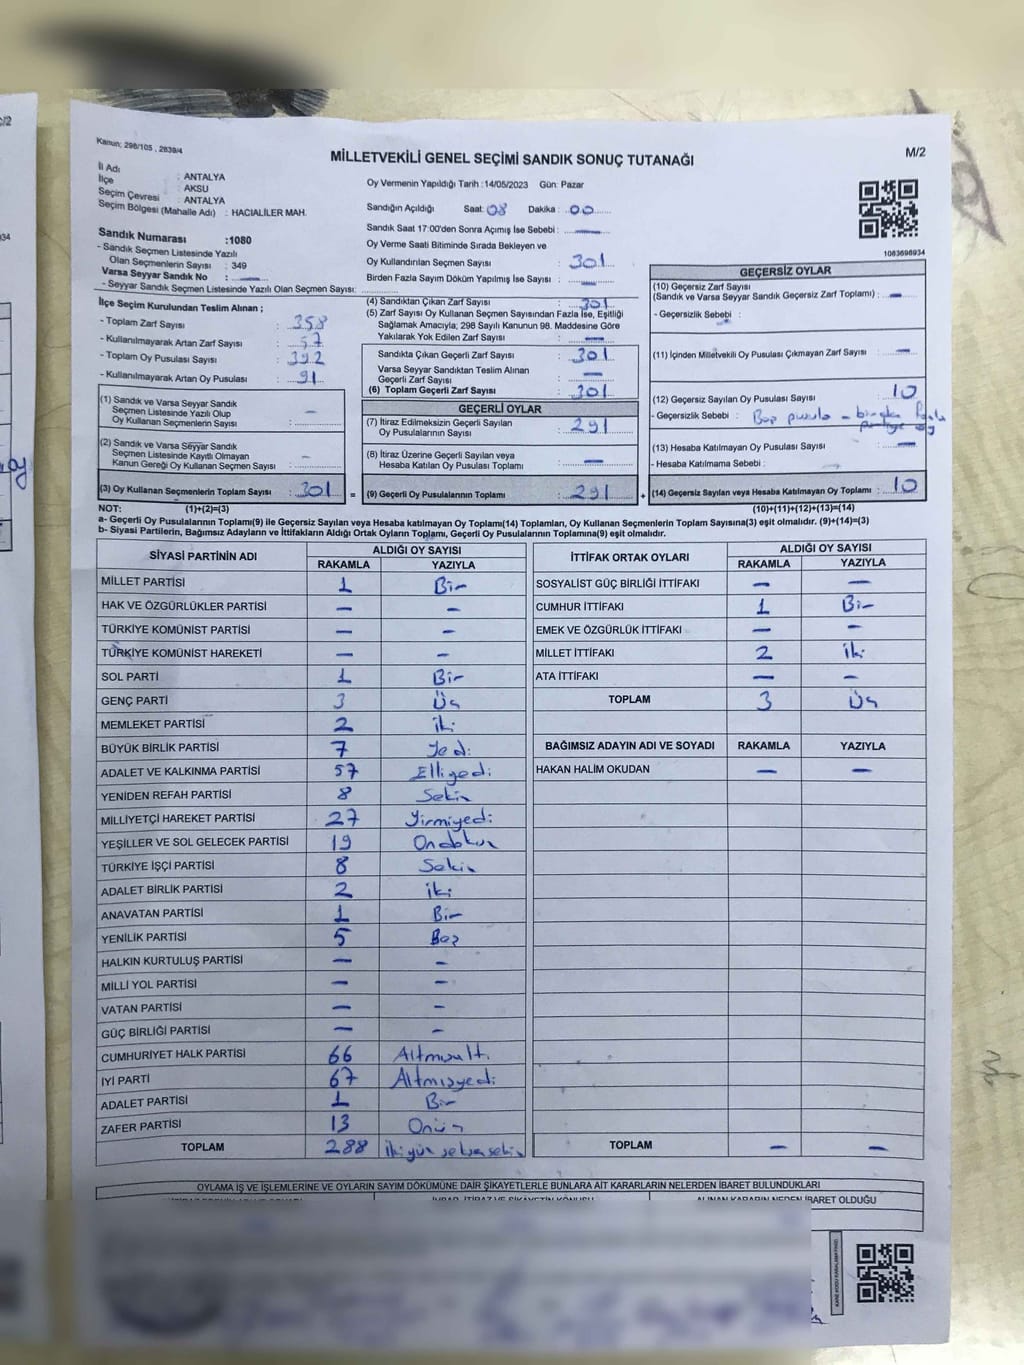 Kanun; 298/105 , 2839/4
MİLLETVEKİLİ GENEL SEÇİMİ SANDIK SONUÇ TUTANAĞI
M/2
İl Adı : ANTALYA
İlçe : AKSU
Seçim Çevresi : ANTALYA
Seçim Bölgesi (Mahalle Adı) : HACIALİLER MAH.
Sandık Numarası :1080
- Sandık Seçmen Listesinde Yazılı
Olan Seçmenlerin Sayısı : 349
Varsa Seyyar Sandık No : —
- Seyyar Sandık Seçmen Listesinde Yazılı Olan Seçmen Sayısı:
Oy Vermenin Yapıldığı Tarih :14/05/2023 Gün: Pazar
Sandığın Açıldığı Saat: 08 Dakika : 00
Sandık Saat 17:00'den Sonra Açımış İse Sebebi : —
Oy Verme Saati Bitiminde Sırada Bekleyen ve
Oy Kullandırılan Seçmen Sayısı : 301
Birden Fazla Sayım Döküm Yapılmış İse Sayısı : —
1083698934
İlçe Seçim Kurulundan Teslim Alınan ;
- Toplam Zarf Sayısı : 358
- Kullanılmayarak Artan Zarf Sayısı : 57
- Toplam Oy Pusulası Sayısı : 392
- Kullanılmayarak Artan Oy Pusulası : 91
(1) Sandık ve Varsa Seyyar Sandık
Seçmen Listesinde Yazılı Olup
Oy Kullanan Seçmenlerin Sayısı : —
(2) Sandık ve Varsa Seyyar Sandık
Seçmen Listesinde Kayıtlı Olmayan
Kanun Gereği Oy Kullanan Seçmen Sayısı : —
(3) Oy Kullanan Seçmenlerin Toplam Sayısı : 301
(4) Sandıktan Çıkan Zarf Sayısı : 301
(5) Zarf Sayısı Oy Kullanan Seçmen Sayısından Fazla İse, Eşitliği
Sağlamak Amacıyla; 298 Sayılı Kanunun 98. Maddesine Göre
Yakılarak Yok Edilen Zarf Sayısı : —
Sandıkta Çıkan Geçerli Zarf Sayısı : 301
Varsa Seyyar Sandıktan Teslim Alınan
Geçerli Zarf Sayısı : —
(6) Toplam Geçerli Zarf Sayısı : 301
GEÇERLİ OYLAR
(7) İtiraz Edilmeksizin Geçerli Sayılan
Oy Pusulalarının Sayısı : 291
(8) İtiraz Üzerine Geçerli Sayılan veya
Hesaba Katılan Oy Pusulası Toplamı : —
= (9) Geçerli Oy Pusulalarının Toplamı : 291
GEÇERSİZ OYLAR
(10) Geçersiz Zarf Sayısı
(Sandık ve Varsa Seyyar Sandık Geçersiz Zarf Toplamı) : —
- Geçersizlik Sebebi :
(11) İçinden Milletvekili Oy Pusulası Çıkmayan Zarf Sayısı : —
(12) Geçersiz Sayılan Oy Pusulası Sayısı : 10
- Geçersizlik Sebebi : Boş pusula - birden fazla
partiye oy
(13) Hesaba Katılmayan Oy Pusulası Sayısı : —
- Hesaba Katılmama Sebebi :
+ (14) Geçersiz Sayılan veya Hesaba Katılmayan Oy Toplamı : 10
NOT: (1)+(2)=(3) (10)+(11)+(12)+(13)=(14)
a- Geçerli Oy Pusulalarının Toplamı(9) ile Geçersiz Sayılan veya Hesaba katılmayan Oy Toplamı(14) Toplamları, Oy Kullanan Seçmenlerin Toplam Sayısına(3) eşit olmalıdır. (9)+(14)=(3)
b- Siyasi Partilerin, Bağımsız Adayların ve İttifakların Aldığı Ortak Oyların Toplamı, Geçerli Oy Pusulalarının Toplamına(9) eşit olmalıdır.
SİYASİ PARTİNİN ADI ALDIĞI OY SAYISI
RAKAMLA YAZIYLA
MİLLET PARTİSİ 1 Bir
HAK VE ÖZGÜRLÜKLER PARTİSİ — —
TÜRKİYE KOMÜNİST PARTİSİ — —
TÜRKİYE KOMÜNİST HAREKETİ — —
SOL PARTİ 1 Bir
GENÇ PARTİ 3 Üç
MEMLEKET PARTİSİ 2 iki
BÜYÜK BİRLİK PARTİSİ 7 Yedi
ADALET VE KALKINMA PARTİSİ 57 Elliyedi
YENİDEN REFAH PARTİSİ 8 Sekiz
MİLLİYETÇİ HAREKET PARTİSİ 27 Yirmiyedi
YEŞİLLER VE SOL GELECEK PARTİSİ 19 Ondokuz
TÜRKİYE İŞÇİ PARTİSİ 8 Sekiz
ADALET BİRLİK PARTİSİ 2 iki
ANAVATAN PARTİSİ 1 Bir
YENİLİK PARTİSİ 5 Beş
HALKIN KURTULUŞ PARTİSİ — —
MİLLİ YOL PARTİSİ — —
VATAN PARTİSİ — —
GÜÇ BİRLİĞİ PARTİSİ — —
CUMHURİYET HALK PARTİSİ 66 Altmışaltı
İYİ PARTİ 67 Altmışyedi
ADALET PARTİSİ 1 Bir
ZAFER PARTİSİ 13 Onüç
TOPLAM 288 ikiyüz seksensekiz
İTTİFAK ORTAK OYLARI ALDIĞI OY SAYISI
RAKAMLA YAZIYLA
SOSYALİST GÜÇ BİRLİĞİ İTTİFAKI — —
CUMHUR İTTİFAKI 1 Bir
EMEK VE ÖZGÜRLÜK İTTİFAKI — —
MİLLET İTTİFAKI 2 iki
ATA İTTİFAKI — —
TOPLAM 3 Üç
BAĞIMSIZ ADAYIN ADI VE SOYADI RAKAMLA YAZIYLA
HAKAN HALİM OKUDAN — —
TOPLAM — —
OYLAMA İŞ VE İŞLEMLERİNE VE OYLARIN SAYIM DÖKÜMÜNE DAİR ŞİKAYETLERLE BUNLARA AİT KARARLARIN NELERDEN İBARET BULUNDUKLARI
İHBAR, İTİRAZ VE ŞİKAYETİN KONUSU ALINAN KARARIN NEDEN İBARET OLDUĞU